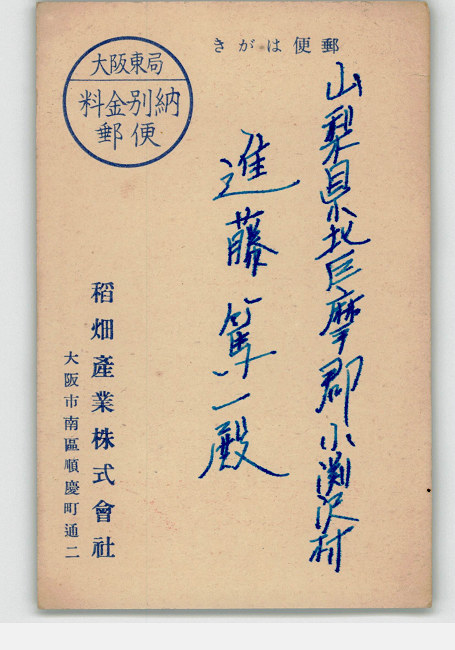 郵便はがき
山梨県北巨摩郡小渕沢村
進藤篤一殿
大阪東局
料金別納
郵便
稻畑產業株式會社
大阪市南區順慶町通二